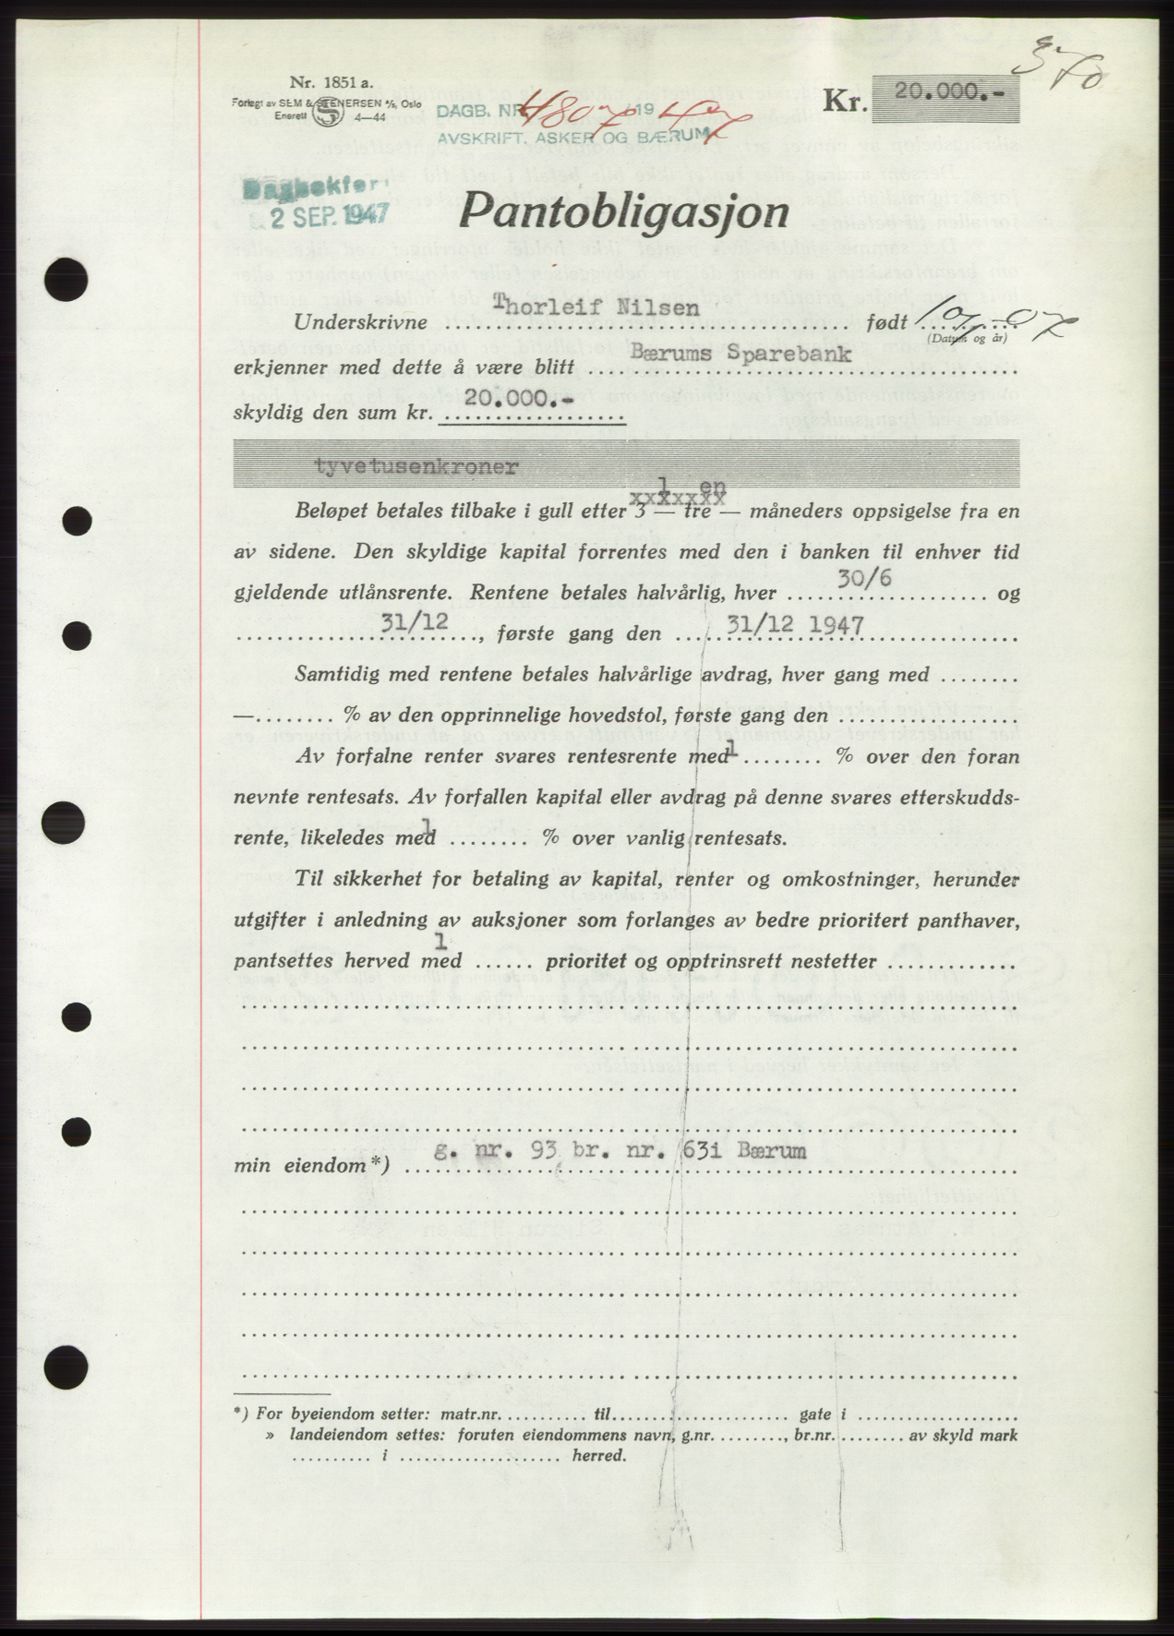 370
Nr. 1851 a.
Forlagt av SEM & STENERSEN A/S, Oslo
Enerett 4—44
DAGB. NR. 4807 19 47
AVSKRIFT. ASKER OG BÆRUM
Kr. 20.000.-
Dagbokført
2 SEP. 1947
Pantobligasjon
Underskrivne Thorleif Nilsen født
(Datum og år)
erkjenner med dette å være blitt Bærums Sparebank
skyldig den sum kr. 20.000.-
tyvetusenkroner
1 en
Beløpet betales tilbake i gull etter 3 — tre — måneders oppsigelse fra en
av sidene. Den skyldige kapital forrentes med den i banken til enhver tid
gjeldende utlånsrente. Rentene betales halvårlig, hver 30/6 og
31/12, første gang den 31/12 1947
Samtidig med rentene betales halvårlige avdrag, hver gang med ........
—........ % av den opprinnelige hovedstol, første gang den ..................
Av forfalne renter svares rentesrente med 1 ........ % over den foran
nevnte rentesats. Av forfallen kapital eller avdrag på denne svares etterskudds-
rente, likeledes med 1 ........ % over vanlig rentesats.
Til sikkerhet for betaling av kapital, renter og omkostninger, herunder
utgifter i anledning av auksjoner som forlanges av bedre prioritert panthaver,
pantsettes herved med 1 ...... prioritet og opptrinsrett nestetter .............
min eiendom*) g. nr. 93 br. nr. 63i Bærum
*) For byeiendom setter: matr.nr. ........... til...................... gate i ....................
» landeiendom settes: foruten eiendommens navn, g.nr. ........, br.nr. ........ av skyld mark
.......... i .................... herred.